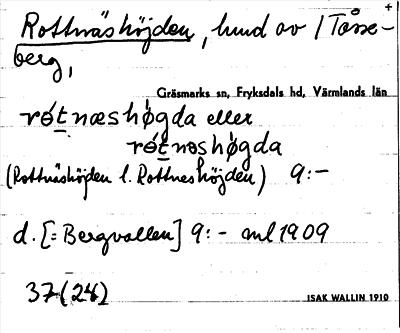 Rottnäshöjden, hund av / Tosse-
berg,
Gräsmarks sn, Fryksdals hd, Värmlands län
røtnæshøgda eller
røtnəshøgda
(Rottnäshöjden l. Rottneshöjden) 9:-
d. [= Bergvallen] 9:- ml 1909
37(24)
ISAK WALLIN 1910